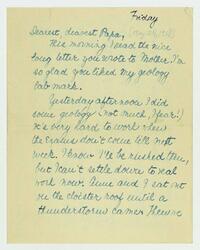 Friday
Dearest, dearest Papa,
This morning I read the nice
long letter you wrote to Mother. I'm
so glad you liked my geology
lab mark.
Yesterday afternoon I did
some geology (not much, I fear!)
It's very hard to work when
the exams don't come till next
week. I know I'll be rushed then,
but I can't settle down to real
work now. Anne and I sat out
on the cloister roof until a
thunderstorm came. Then we